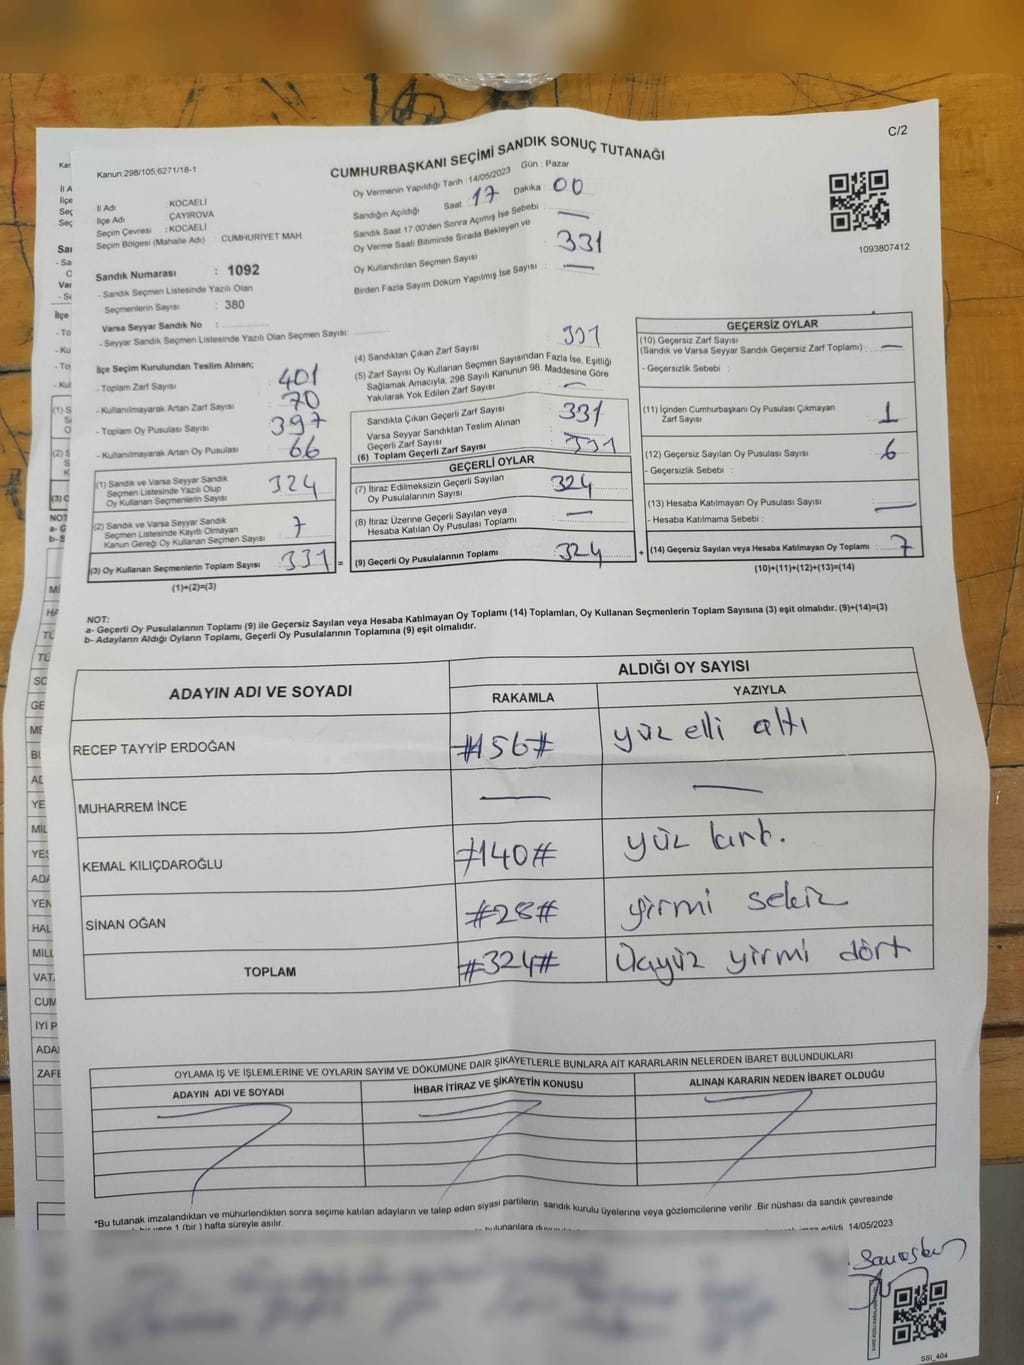 C/2
CUMHURBAŞKANI SEÇİMİ SANDIK SONUÇ TUTANAĞI
Kanun:298/105,6271/18-1
Oy Vermenin Yapıldığı Tarih : 14/05/2023 Gün : Pazar
İl Adı : KOCAELİ
İlçe Adı : ÇAYIROVA
Seçim Çevresi : KOCAELİ
Seçim Bölgesi (Mahalle Adı) : CUMHURİYET MAH.
Sandığın Açıldığı Saat 17 Dakika 00
Sandık Saat 17:00'den Sonra Açılmış İse Sebebi —
Oy Verme Saati Bitiminde Sırada Bekleyen ve
Oy Kullandırılan Seçmen Sayısı 331
Birden Fazla Sayım Döküm Yapılmış İse Sayısı : —
1093807412
Sandık Numarası : 1092
- Sandık Seçmen Listesinde Yazılı Olan
Seçmenlerin Sayısı : 380
Varsa Seyyar Sandık No :
- Seyyar Sandık Seçmen Listesinde Yazılı Olan Seçmen Sayısı:
İlçe Seçim Kurulundan Teslim Alınan;
- Toplam Zarf Sayısı 401
- Kullanılmayarak Artan Zarf Sayısı 70
- Toplam Oy Pusulası Sayısı 397
- Kullanılmayarak Artan Oy Pusulası 66
(1) Sandık ve Varsa Seyyar Sandık
Seçmen Listesinde Yazılı Olup
Oy Kullanan Seçmenlerin Sayısı 324
(2) Sandık ve Varsa Seyyar Sandık
Seçmen Listesinde Kayıtlı Olmayan
Kanun Gereği Oy Kullanan Seçmen Sayısı 7
(3) Oy Kullanan Seçmenlerin Toplam Sayısı 331 =
(1)+(2)=(3)
(4) Sandıktan Çıkan Zarf Sayısı 331
(5) Zarf Sayısı Oy Kullanan Seçmen Sayısından Fazla İse, Eşitliği
Sağlamak Amacıyla, 298 Sayılı Kanunun 98. Maddesine Göre
Yakılarak Yok Edilen Zarf Sayısı —
Sandıkta Çıkan Geçerli Zarf Sayısı 331
Varsa Seyyar Sandıktan Teslim Alınan
Geçerli Zarf Sayısı
(6) Toplam Geçerli Zarf Sayısı 331
GEÇERLİ OYLAR
(7) İtiraz Edilmeksizin Geçerli Sayılan
Oy Pusulalarının Sayısı 324
(8) İtiraz Üzerine Geçerli Sayılan veya
Hesaba Katılan Oy Pusulası Toplamı —
(9) Geçerli Oy Pusulalarının Toplamı 324 +
GEÇERSİZ OYLAR
(10) Geçersiz Zarf Sayısı
(Sandık ve Varsa Seyyar Sandık Geçersiz Zarf Toplamı) : —
- Geçersizlik Sebebi :
(11) İçinden Cumhurbaşkanı Oy Pusulası Çıkmayan
Zarf Sayısı 1
(12) Geçersiz Sayılan Oy Pusulası Sayısı 6
- Geçersizlik Sebebi :
(13) Hesaba Katılmayan Oy Pusulası Sayısı —
- Hesaba Katılmama Sebebi :
(14) Geçersiz Sayılan veya Hesaba Katılmayan Oy Toplamı : 7
(10)+(11)+(12)+(13)=(14)
NOT:
a- Geçerli Oy Pusulalarının Toplamı (9) ile Geçersiz Sayılan veya Hesaba Katılmayan Oy Toplamı (14) Toplamları, Oy Kullanan Seçmenlerin Toplam Sayısına (3) eşit olmalıdır. (9)+(14)=(3)
b- Adayların Aldığı Oyların Toplamı, Geçerli Oy Pusulalarının Toplamına (9) eşit olmalıdır.
ADAYIN ADI VE SOYADI
ALDIĞI OY SAYISI
RAKAMLA YAZIYLA
RECEP TAYYİP ERDOĞAN #156# yüz elli altı
MUHARREM İNCE — —
KEMAL KILIÇDAROĞLU #140# yüz kırk.
SİNAN OĞAN #28# yirmi sekiz
TOPLAM #324# Üçyüz yirmi dört
OYLAMA İŞ VE İŞLEMLERİNE VE OYLARIN SAYIM VE DÖKÜMÜNE DAİR ŞİKAYETLERLE BUNLARA AİT KARARLARIN NELERDEN İBARET BULUNDUKLARI
ADAYIN ADI VE SOYADI İHBAR İTİRAZ VE ŞİKAYETİN KONUSU ALINAN KARARIN NEDEN İBARET OLDUĞU
*Bu tutanak imzalandıktan ve mühürlendikten sonra seçime katılan adayların ve talep eden siyasi partilerin sandık kurulu üyelerine veya gözlemcilerine verilir. Bir nüshası da sandık çevresinde
1 (bir) hafta süreyle asılır.
imza edildi. 14/05/2023
SSI_404